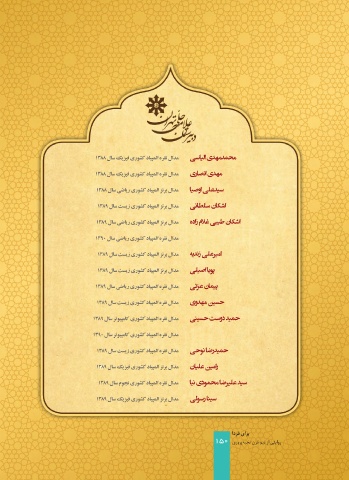 دبیرستان علامه حلی تهران
محمدمهدی الیاسی مدال نقره المپیاد کشوری فیزیک سال ۱۳۸۸
مهدی انصاری مدال نقره المپیاد کشوری فیزیک سال ۱۳۸۸
سیدعلی اوصیا مدال برنز المپیاد کشوری ریاضی سال ۱۳۸۹
اشکان سلطانی مدال نقره المپیاد کشوری زیست سال ۱۳۸۹
اشکان طیبی غلام زاده مدال نقره المپیاد کشوری ریاضی سال ۱۳۸۹
مدال نقره المپیاد کشوری ریاضی سال ۱۳۹۰
امیرعلی زندیه مدال برنز المپیاد کشوری زیست سال ۱۳۸۹
پویا اصیلی مدال برنز المپیاد کشوری زیست سال ۱۳۸۹
پیمان عزتی مدال نقره المپیاد کشوری زیست سال ۱۳۸۹
حسین مهدوی مدال نقره المپیاد کشوری زیست سال ۱۳۸۹
حمید دوست حسینی مدال نقره المپیاد کشوری کامپیوتر سال ۱۳۸۹
مدال نقره المپیاد کشوری کامپیوتر سال ۱۳۹۰
حمیدرضا نوحی مدال نقره المپیاد کشوری زیست سال ۱۳۸۹
رامین علیان مدال برنز المپیاد کشوری فیزیک سال ۱۳۸۹
سید علیرضا محمودی نیا مدال نقره المپیاد کشوری نجوم سال ۱۳۸۹
سینا رسولی مدال برنز المپیاد کشوری فیزیک سال ۱۳۸۹
۱۵۰
برای فردا